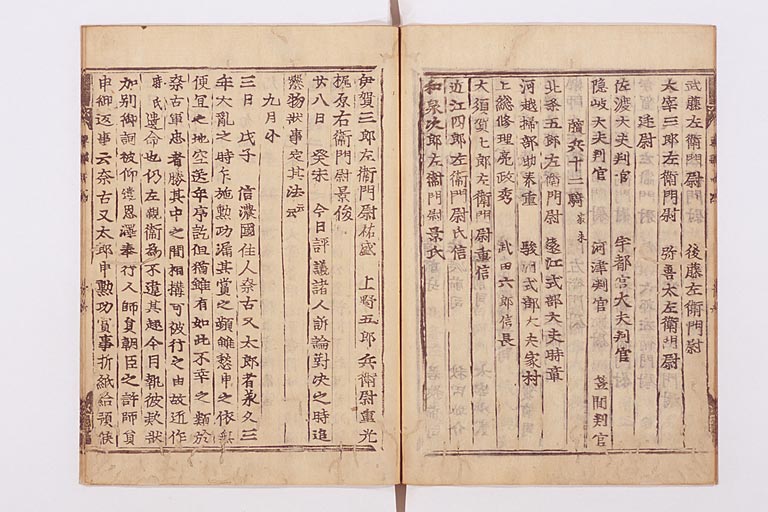 武藤左衛門尉 後藤左衛門尉
太宰三郎左衛門尉 弥吾太左衛門尉
逵尉
佐渡大夫判官 宇都宮大夫判官
隠岐大夫判官 河津判官 薩間判官
随兵十二騎 家来
北条五郎左衛門尉 遠江式部大夫時章
河越掃部助泰重 駿河式部大夫家村
上総修理亮政秀 武田六郎信長
大須賀七郎左衛門尉重信
近江四郎左衛門尉氏信
和泉次郎左衛門尉景氏
伊賀三郎左衛門尉祐盛 上野五郎兵衛尉重光
梶原右衛門尉景俊
廿八日 癸未 今日評議諸人訴論対决之時進
懸物状事定其法云云
九月小
三日 戊子 信濃國住人奈古又太郎者承久三
年大乱之時乍施勲功漏其賞之類雖愁申之依無
便宜之地空送年序訖但猶雖有如此不幸之類於
奈古軍忠者勝其中之間相構可被行之由故近作
時氏遺命也仍左親衛為不違其趣今日執彼欵状
加別御詞被仰遣恩澤奉行人師員朝臣之許師員
申御返事云奈古又太郎申勲功賞事折紙給預候